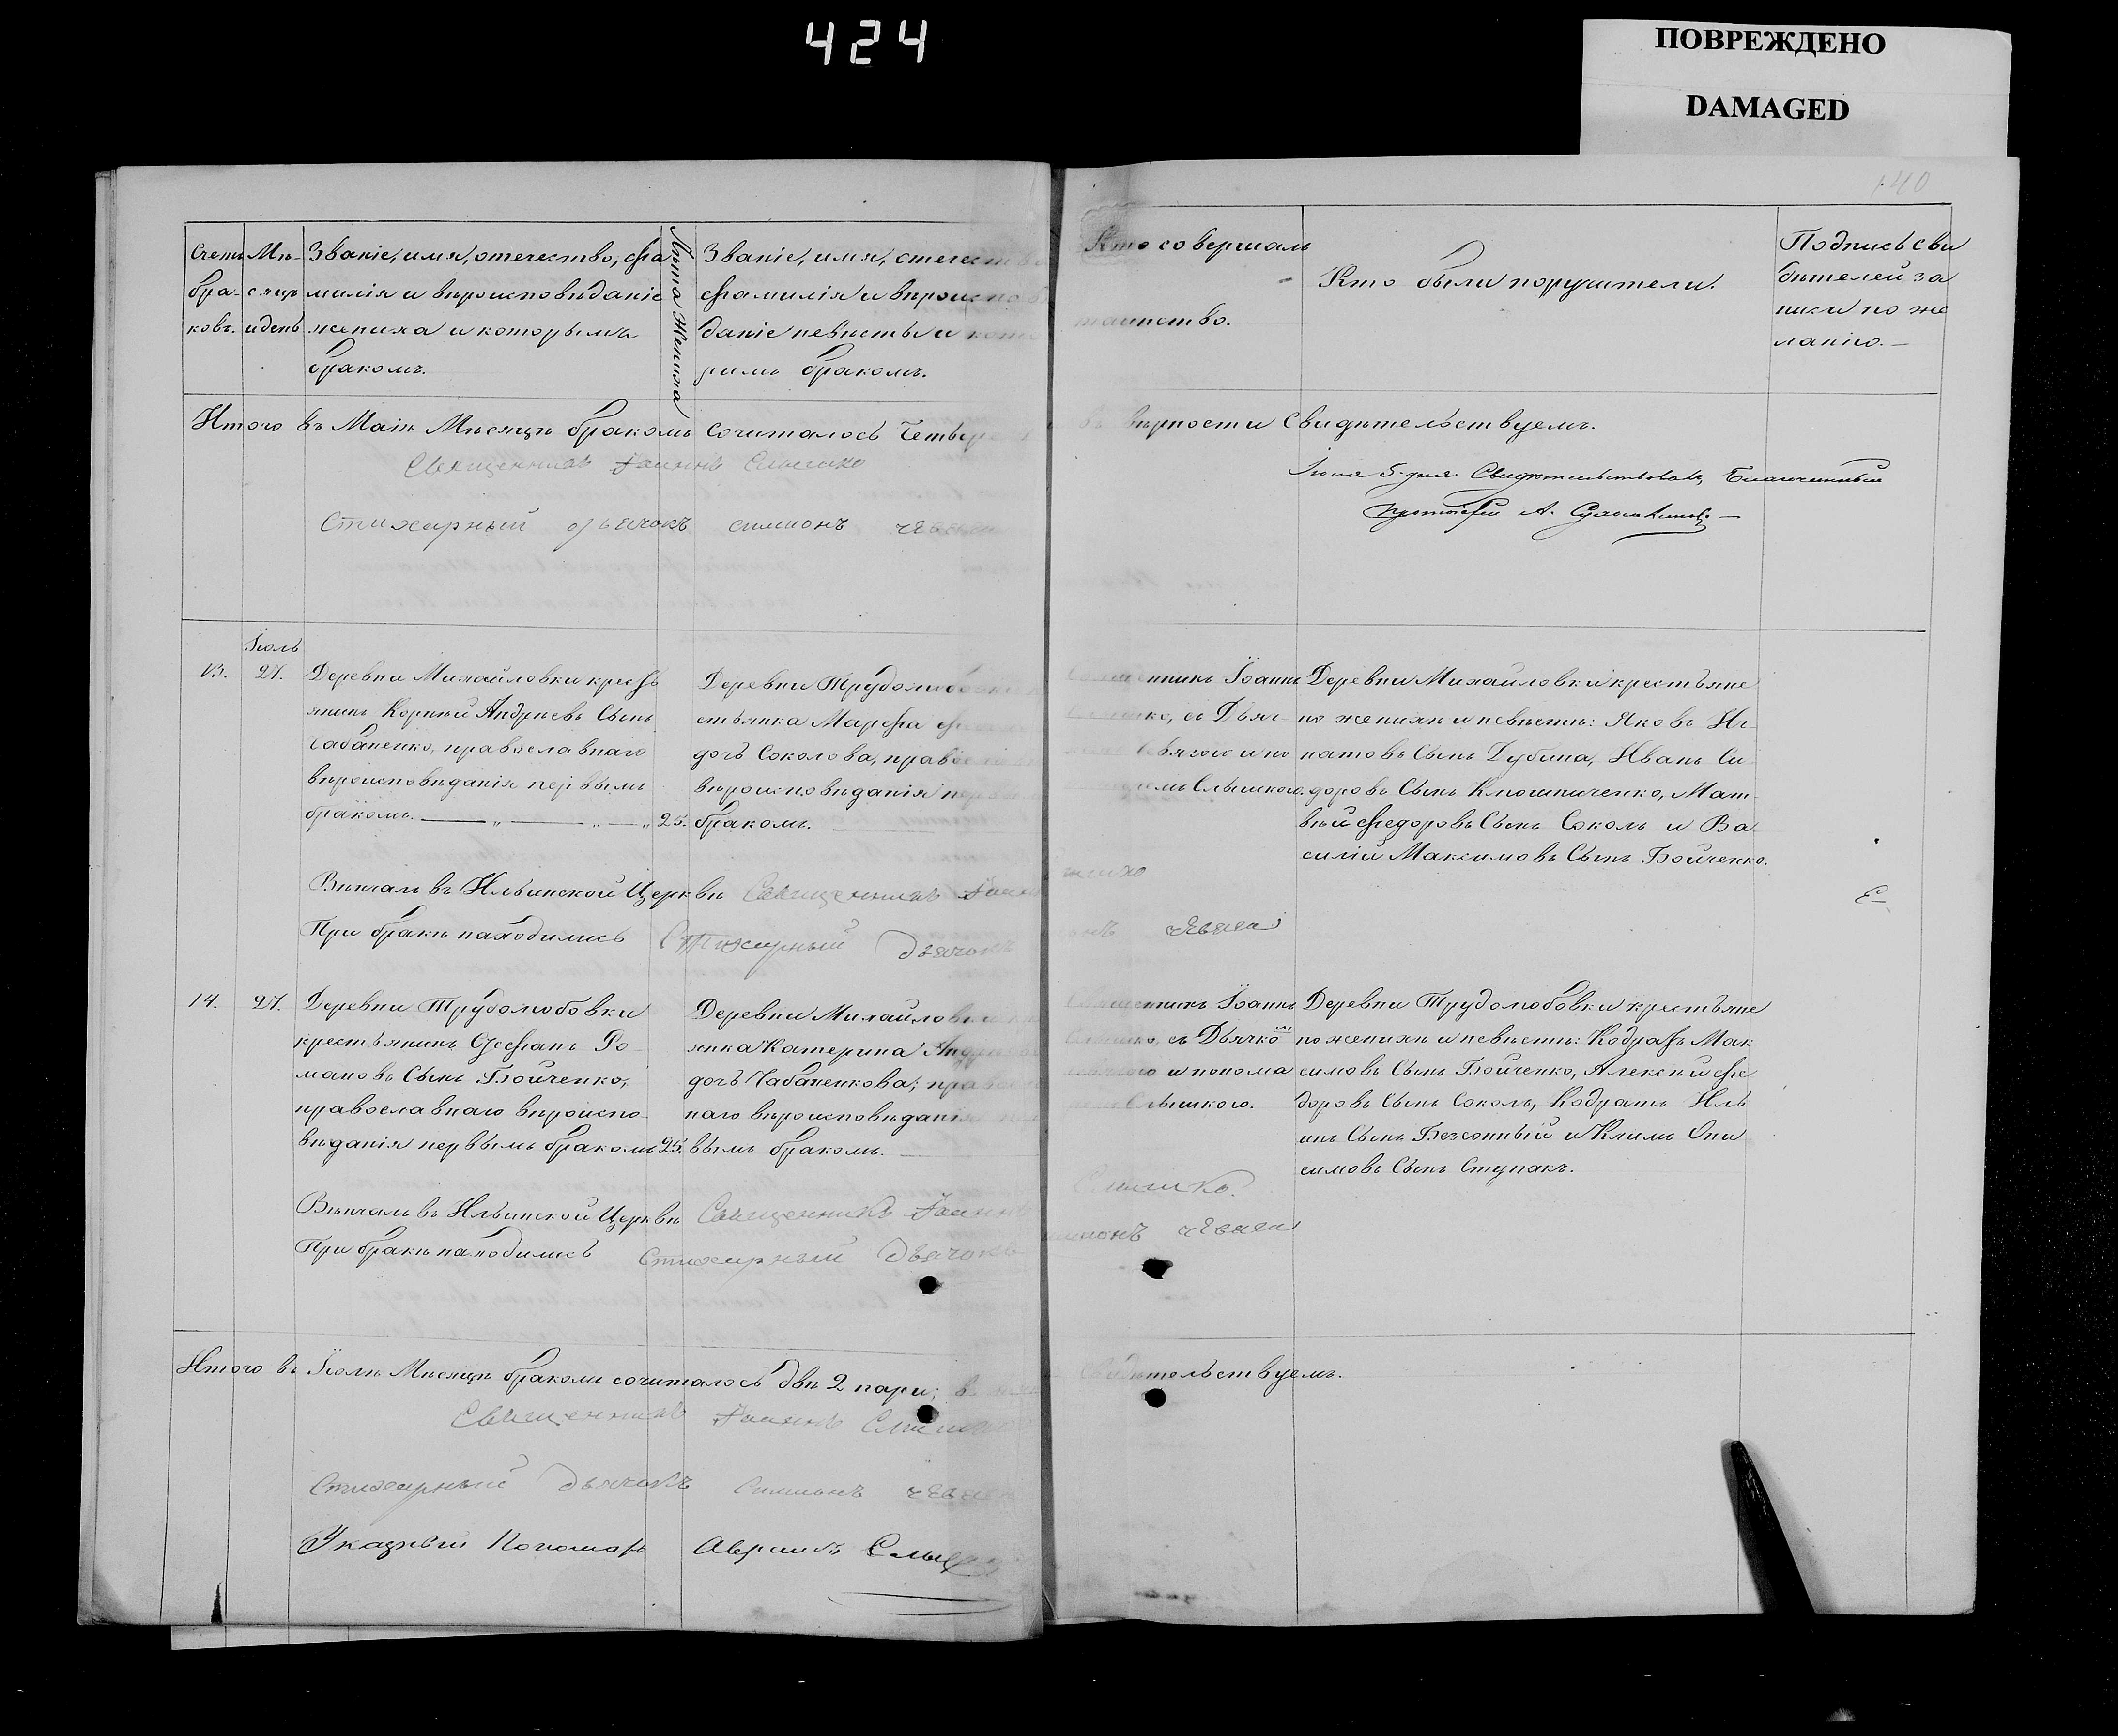 424
ПОВРЕЖДЕНО
DAMAGED
140
Счетъ бра-ковъ.
Мѣ-сяцъ и день
Званіе, имя, отечество, фа
милія и вѣроисповѣданіе
жениха и которымъ
бракомъ.
Лѣта Жениха
Званіе, имя, отечест
фамилія и вѣроиспо
даніе невѣсты и кото
римъ бракомъ.
Кто совершалъ
таинство.
Кто были поручители.
Подпись сви
дѣтелей за
писи по же
ланію.
Итого въ Маіѣ Мѣсяцѣ бракомъ сочиталось Четвер
вѣрности Свидѣтельствуемъ.
Священникъ Іоаннъ Слышко
Стихарный дьячокъ симионъ
Іюня 5. дня. Свидѣтельствовалъ, Благочинный
протоіерей А.
Іюль
13. 27. Деревни Михайловки кресть
янинъ Корній Андріевъ Сынъ
Чабаненко, православнаго
вѣроисповѣданія первымъ
бракомъ. 25.
Деревни Трудолюбовки
стьянка Марфа
дочь Соколова, правосла
вѣроисповѣданія пер
бракомъ.
Іоаннъ
съ Дьяч-
и по
Слышкого.
Деревни Михайловки крестьяне
по женихѣ и невѣстѣ: Яковъ Иг-
натовъ Сынъ Дубина, Иванъ Си-
доровъ Сынъ Ключниченко, Мат-
вѣй Федоровъ Сынъ Соколъ и Ва-
силій Максимовъ Сынъ Бойченко.
Вѣнчалъ въ Ильинской Церквѣ Священникъ Іоан
При бракѣ находились Стихарный Дьячокъ
14. 27. Деревни Трудолюбовки
крестьянинъ Стефанъ Ро-
мановъ Сынъ Бойченко,
православнаго вѣроиспо-
вѣданія первымъ бракомъ 25.
Деревни Михайлов
янка Катерина Андр
дочь Чабаненкова; право
наго вѣроисповѣданія
вымъ бракомъ.
Священникъ Іоаннъ
съ Дьячком
и понома
Слышкого.
Деревни Трудолюбовки крестьяне
по женихѣ и невѣстѣ: Кодратъ Мак
симовъ Сынъ Бойченко, Алексѣй Фе
доровъ Сынъ Соколъ, Кодратъ Иль
инъ Сынъ Безсонный и Климъ Они
симовъ Сынъ Ступакъ.
Вѣнчалъ въ Ильинской Церквѣ Священникъ Іоаннъ
Слышко.
При бракѣ находились Стихарный Дьячокъ
Итого въ Іюлѣ Мѣсяцѣ бракомъ сочиталось двѣ 2 пари;
Свидѣтельствуемъ.
Священникъ Іоаннъ Слышко
Стихарный дьячокъ Симионъ
Указный Пономарь Авраамъ